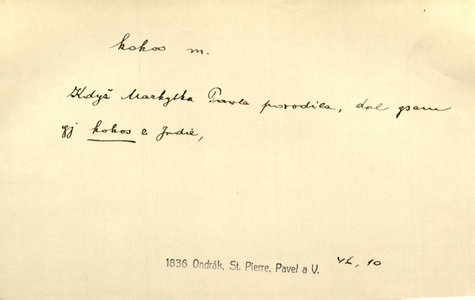 kokos m.
Když Markytka Pavla porodila, dal gsem
gj kokos z Indie,
1836 Ondrák, St. Pierre, Pavel a V. 10